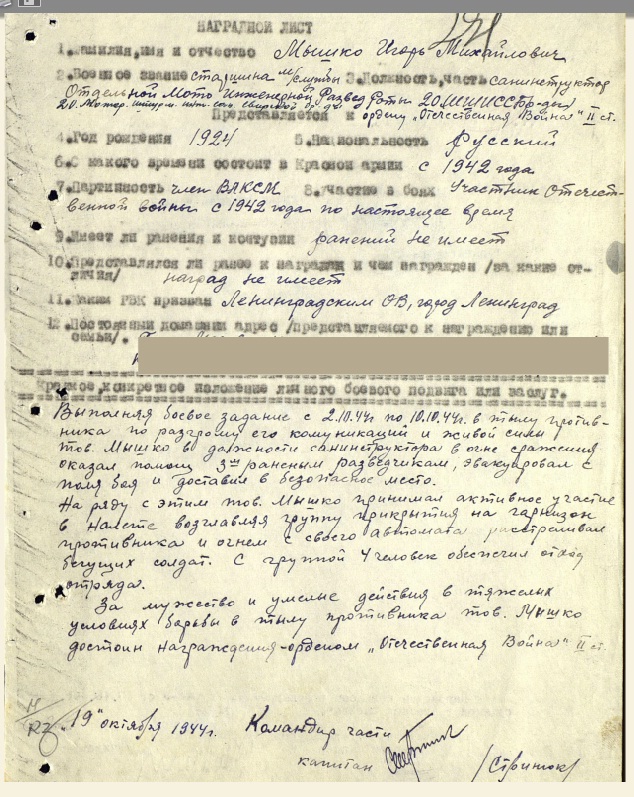 НАГРАДНОЙ ЛИСТ
1. Фамилия, имя и отчество Мышко Игорь Михайлович
2. Военное звание старшина м/службы 3. Должность, часть санинструктор
Отдельной Мото Инженерной Развед Роты 20 МШИСБр-ды/
Представляется к ордену „Отечественная Война" II ст.
4. Год рождения 1924 5. Национальность Русский
6. С какого времени состоит в Красной армии с 1942 года
7. Партийность член ВЛКСМ 8. Участие в боях Участник Отечест-
венной войны с 1942 года по настоящее время
9. Имеет ли ранения и контузии ранений не имеет
10. Представлялся ли ранее к наградам и чем награжден /за какие от-
личия/ наград не имеет
11. Каким РВК призван Ленинградским ОВ, город Ленинград
12. Постоянный домашний адрес /представляемого к награждению или
семьи/.
Краткое, конкретное изложение личного боевого подвига или заслуг.
Выполняя боевое задание с 2.10.44г по 10.10.44г. в тылу против-
ника по разгрому его коммуникаций и живой силы
тов. Мышко в должности санинструктора в огне сражения
оказал помощь 3-м раненым разведчикам, эвакуировал с
поля боя и доставил в безопасное место.
На ряду с этим тов. Мышко принимал активное участие
в налете возглавляя группу прикрытия на гарнизон
противника и огнем с своего автомата расстреливал
бегущих солдат. С группой 4 человек обеспечил отход
отряда.
За мужество и умелые действия в тяжелых
условиях борьбы в тылу противника тов. Мышко
достоин награждения-орденом „Отечественная Война" II ст.
„19" октября 1944г. Командир части
капитан /Стринюк/